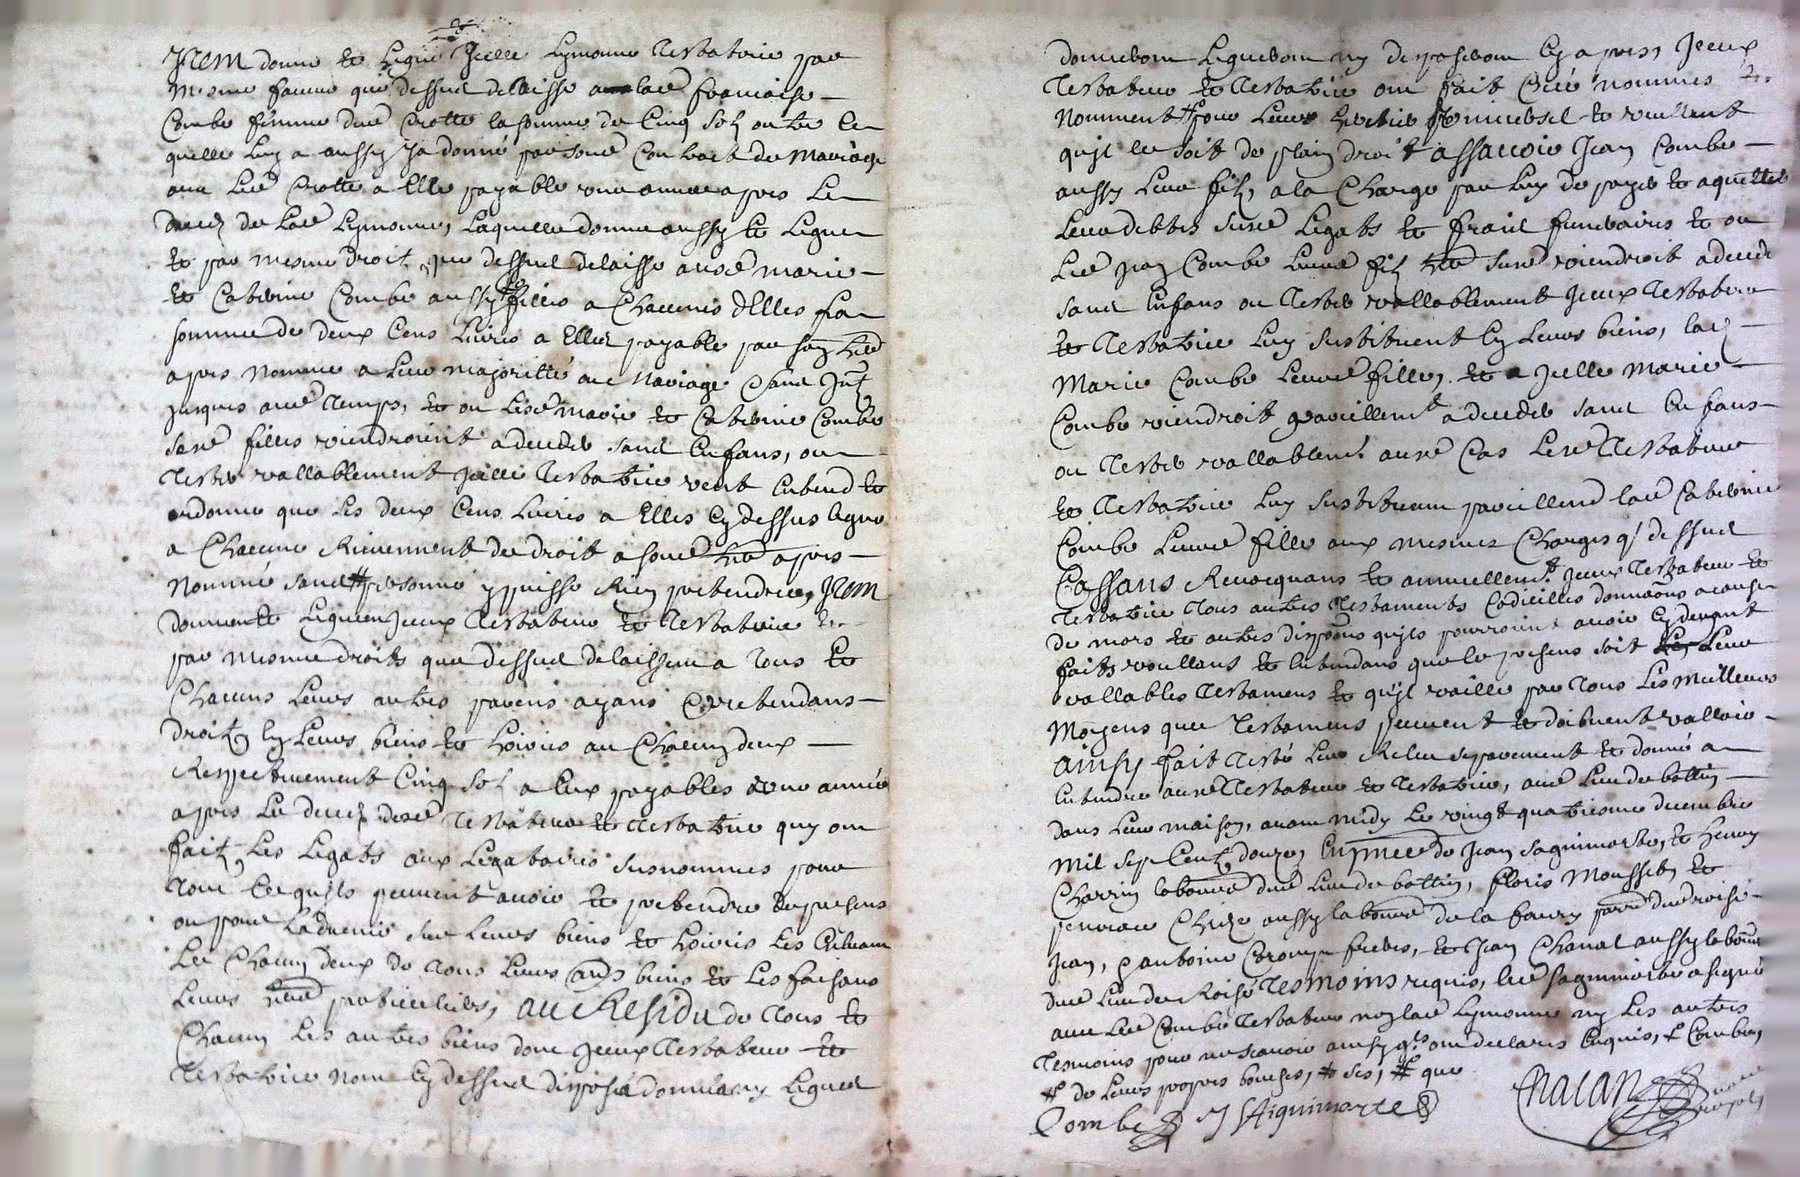 Item donne et legue Jcelle Lymonne Testatrice par
mesme faveur que dessus delaisse a lad francoise
Combe femme dud Crotte la somme de Cinq solz outre ce
quelle luy a aussy Ja donné par son Contract de Mariage
avec led Crotte a Elle payable une annee apres le
decez de lad Lymonne, Laquelle donne aussy et legue
et par mesme droit que dessus delaisse ausd marie
et Catherine Combe aussy filles a Chacunes delles la
somme de deux Cens Livres a Elles payable par son
apres nommé a leur majorité ou Mariage sans
jusques aud temps, et ou lesd marie et Catherine Combe
sesd filles viendroient a deceder sans Enfans, ou
tester vallablement Jcelle Testatrice veut Entend et
ordonne que les deux Cens Livres a Elles cy dessus legué
a Chacune Reviennent de droit a sond apres
nommé sans # personne y puisse Rien pretendre, Item
donnent et leguent Jceux Testateur et Testatrice
par mesme droits que dessus delaissent a tous et
Chacuns leurs autres parens ayans pretendans
droitz en leurs biens et hoiries au Chacun deux
Respectivement Cinq solz a Eux payables une année
apres le decez desd Testateur et Testatrice quy ont
fait Les Legats aux Legataires susnommes pour
tout Ce quils peuvent avoir et pretendre de presens
ou pour Ladvenir sur leurs biens et hoiries les
Le Chacun deux de tous leurs biens et les faisans
leurs particuliers, au Residu de tous et
Chacun les autres biens dont Jceux Testateur et
Testatrice nont cy dessus disposé donné ny legué
donneront Legueront ny disposeront cy apres, Jceux
Testateur et Testatrice ont fait Créé nommés
nomment # pour leur heritier Universel et veullent
quil le soit de plain droit assavoir Jean Combe
aussy leur filz, a la Charge par luy de payer et aquitter
leurs debtes susd Legats et frais funeraires et ou
led Jean Combe leurd filz susd viendroit a deceder
sans Enfans ou tester vallablement Jceux Testateur
et Testatrice luy substituent en leurs biens, lad
Marie Combe leurd fille, et Jcelle Marie
Combe viendroit pareillemt a deceder sans Enfans
ou tester vallablemt aud Cas lesd Testateur
et Testatrice luy substituent pareillemt lad Catherine
Combe leurd fille aux mesmes Charges q dessus
Cassans Revocquans et annullent Jceux Testateur et
Testatrice tous autres Testaments Codicilles donnaons a cause
de mort et autres dispoons quils pourroient avoir cy devant
faits voullans et Entendans que le presens soit leur
vallables Testament et quil vaille par tous les meilleurs
moyens que Testamens peuvent et doibvent valloir
ainsy fait testé leu Releu separement et donné a
Entendre ausd Testateur et Testatrice, aud lieu de
dans leur maison, avant midy le vingt quatriesme decembre
mil sept Centz douze, En pnce de Jean saguimorte, et henry
Charrin laboureur dud lieu de, floris Mousset, et
aussy laboureur de la
Jean, et antoine freres, et Jean Chanal aussy laboureur
dud lieu de tesmoins requis, led saguimorte a signé
avec led Combe Testateur non lad Lymonne ny les autres
tesmoins pour ne scavoir ainsy qls ont declares Enquis, # Combe,
# de leurs propres bouches, # ses, # que
Combe J SAiguimorte
Chalan